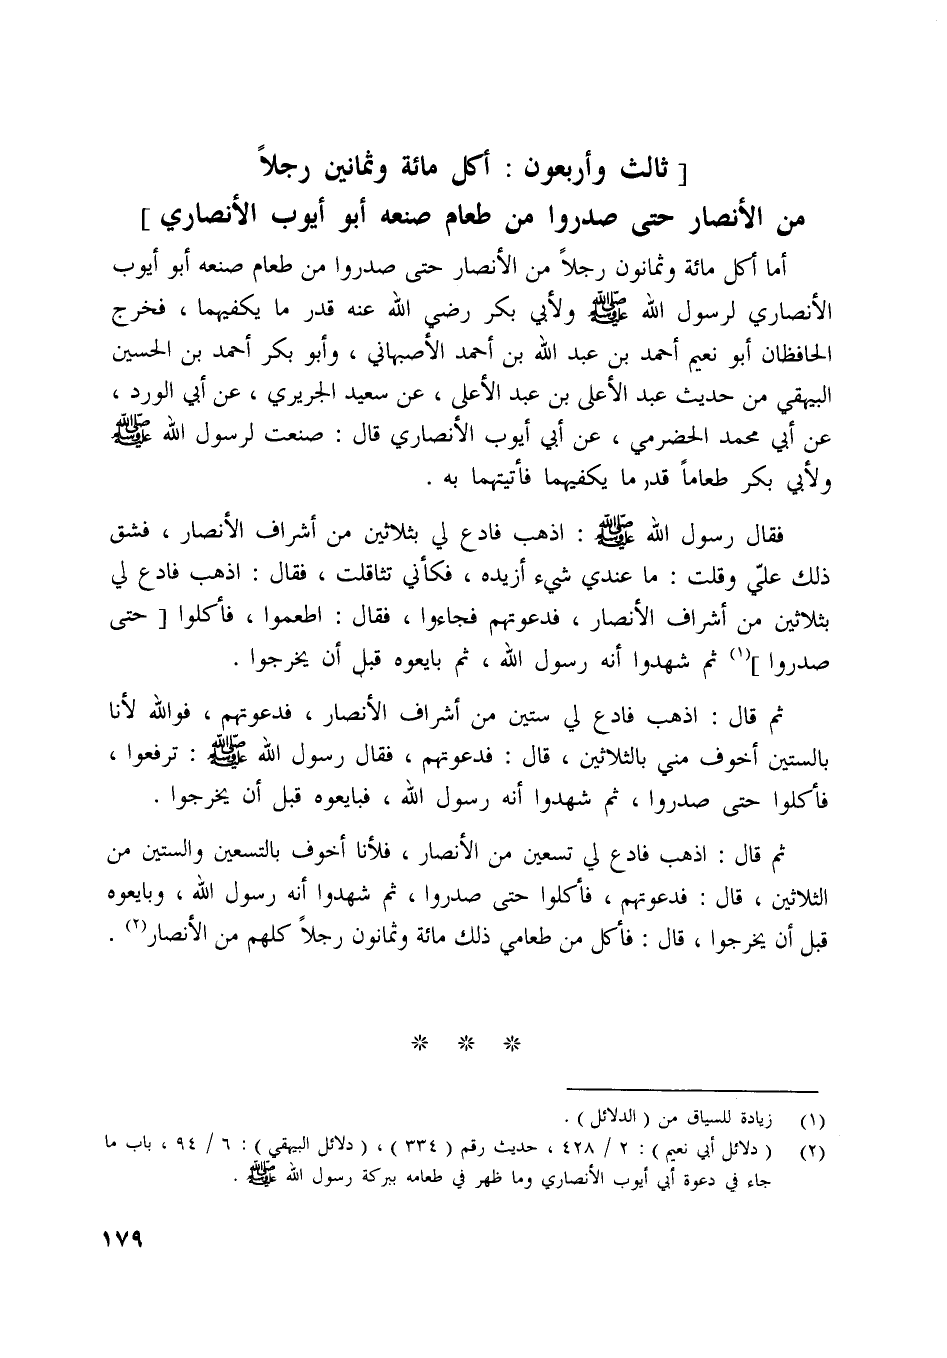 [ ثالث وأربعون : أكل مائة وثمانين رجلاً
من الأنصار حتى صدروا من طعام صنعه أبو أيوب الأنصاري ]
أما أكل مائة وثمانون رجلاً من الأنصار حتى صدروا من طعام صنعه أبو أيوب
الأنصاري لرسول الله ﷺ ولأبي بكر رضي الله عنه قدر ما يكفيهما ، فخرج
الحافظان أبو نعيم أحمد بن عبد الله بن أحمد الأصبهاني ، وأبو بكر أحمد بن الحسين
البيهقي من حديث عبد الأعلى بن عبد الأعلى ، عن سعيد الجريري ، عن أبي الورد ،
عن أبي محمد الحضرمي ، عن أبي أيوب الأنصاري قال : صنعت لرسول الله ﷺ
ولأبي بكر طعاماً قدر ما يكفيهما فأتيتهما به .
فقال رسول الله ﷺ : اذهب فادع لي بثلاثين من أشراف الأنصار ، فشق
ذلك عليّ وقلت : ما عندي شيء أزيده ، فكأني تثاقلت ، فقال : اذهب فادع لي
بثلاثين من أشراف الأنصار ، فدعوتهم فجاءوا ، فقال : اطعموا ، فأكلوا [ حتى
صدروا ](١) ثم شهدوا أنه رسول الله ، ثم بايعوه قبل أن يخرجوا .
ثم قال : اذهب فادع لي ستين من أشراف الأنصار ، فدعوتهم ، فوالله لأنا
بالستين أخوف مني بالثلاثين ، قال : فدعوتهم ، فقال رسول الله ﷺ : ترفعوا ،
فأكلوا حتى صدروا ، ثم شهدوا أنه رسول الله ، فبايعوه قبل أن يخرجوا .
ثم قال : اذهب فادع لي تسعين من الأنصار ، فلأنا أخوف بالتسعين والستين من
الثلاثين ، قال : فدعوتهم ، فأكلوا حتى صدروا ، ثم شهدوا أنه رسول الله ، وبايعوه
قبل أن يخرجوا ، قال : فأكل من طعامي ذلك مائة وثمانون رجلاً كلهم من الأنصار(٢) .
* * *
(١) زيادة للسياق من ( الدلائل ) .
(٢) ( دلائل أبي نعيم ) : ٢ / ٤٢٨ ، حديث رقم ( ٣٣٤ ) ، ( دلائل البيهقي ) : ٦ / ٩٤ ، باب ما
جاء في دعوة أبي أيوب الأنصاري وما ظهر في طعامه ببركة رسول الله ﷺ .
١٧٩